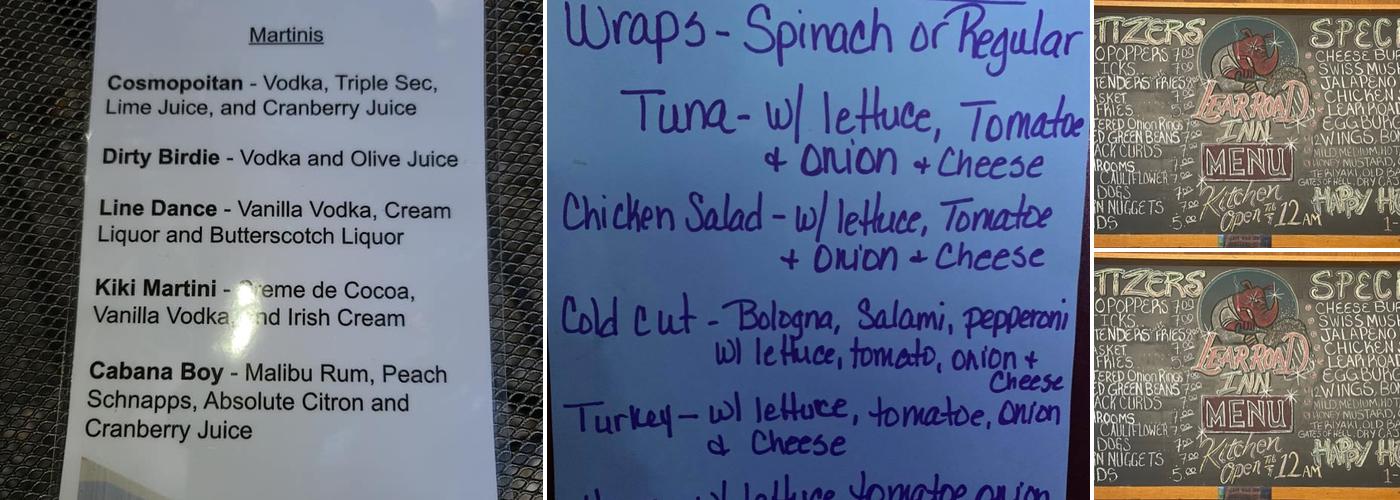 Martinis
Cosmopoitan - Vodka, Triple Sec,
Lime Juice, and Cranberry Juice
Dirty Birdie - Vodka and Olive Juice
Line Dance - Vanilla Vodka, Cream
Liquor and Butterscotch Liquor
Kiki Martini - Creme de Cocoa,
Vanilla Vodka, and Irish Cream
Cabana Boy - Malibu Rum, Peach
Schnapps, Absolute Citron and
Cranberry Juice
Wraps - Spinach or Regular
Tuna - w/ lettuce, Tomatoe
& onion + Cheese
Chicken Salad - w/ lettuce, Tomatoe
+ Onion + Cheese
Cold cut - Bologna, Salami, pepperoni
w/ lettuce, tomato, onion +
Cheese
Turkey - w/ lettuce, tomatoe, onion
& Cheese
w/ lettuce tomatoe onion
TIZERS
OPOPPERS
ICKS
TENDERS FRIES
ASKET
FRIES
TERED Onion Rings
D GREEN BEANS
ACK CURDS
ROOMS
CAULIFLOWER
DOGS
N NUGGETS
DS
LEAR ROAD
INN
MENU
Kitchen
Open Til 12 AM
SPEC
CHEESE BU
SWISS MUS
JALAPENO
CHICKEN
LEAR ROAD
EGG UP
WINGS, B
MILD MEDIUM HOT
HONEY MUSTARD
TERIYAKI, OLD
GATES OF HELL, DRY C
HAPPY H
1-
TIZERS
OPOPPERS
ICKS
TENDERS FRIES
ASKET
FRIES
TERED Onion Rings
D GREEN BEANS
ACK CURDS
ROOMS
CAULIFLOWER
DOGS
N NUGGETS
DS
LEAR ROAD
INN
MENU
Kitchen
Open Til 12 AM
SPEC
CHEESE BU
SWISS MUS
JALAPENO
CHICKEN
LEAR ROAD
EGG UP
WINGS, B
MILD MEDIUM HOT
HONEY MUSTARD
TERIYAKI, OLD
GATES OF HELL, DRY C
HAPPY H
1-